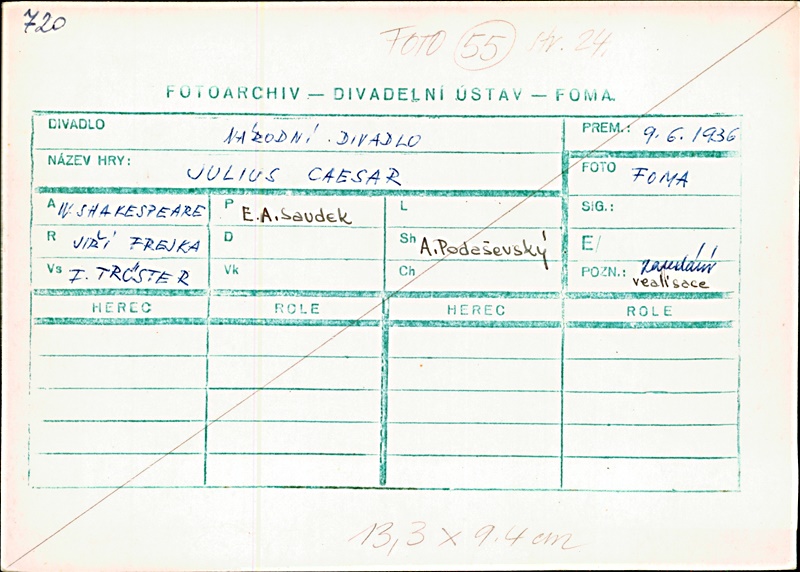 720
FOTO 55 str. 24.
FOTOARCHIV — DIVADELNÍ ÚSTAV — FOMA
DIVADLO NÁRODNÍ DIVADLO PREM.: 9.6.1936
NÁZEV HRY: JULIUS CAESAR FOTO FOMA
A W. SHAKESPEARE P E.A.Saudek L SIG.:
R JIŘÍ FREJKA D Sh A.Podaševský E/
Vs F. TRÖSTER Vk Ch POZN.:
realisace
HEREC ROLE HEREC ROLE
13,3 x 9.4 cm